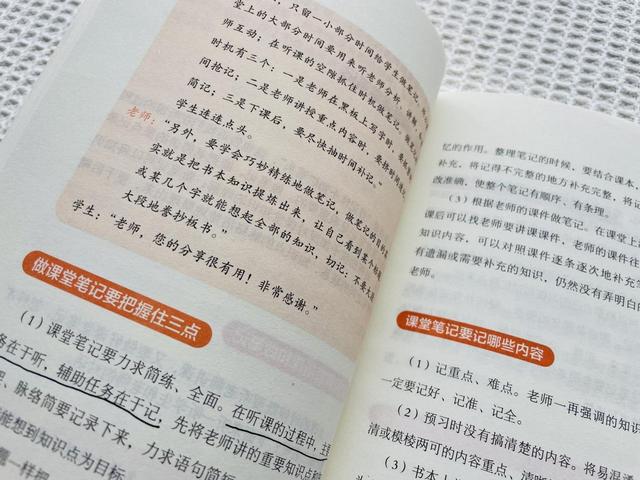 ，只留一小部分时间给学生做笔
堂上的大部分时间要用来听老师分析、讲解
师互动；在听课的空隙抓住时机做笔记。
时机有三个：一是老师在黑板上写字时，要抢
间抢记；二是老师讲授重点内容时，要挤时
简记；三是下课后，要尽快抽时间补记。”
学生连连点头。
老师：“另外，要学会巧妙精练地做笔记，做笔记的目的
实就是把书本知识提炼出来，让自己看到某个标题
或某几个字就能想起全部的知识，切记：不要大段
大段地誊抄板书。”
学生：“老师，您的分享很有用！非常感谢。”
做课堂笔记要把握住三点
（1）课堂笔记要力求简练、全面。
务在于听，辅助任务在于记，在听课的过程中，主
把、脉络简要记录下来，先将老师讲的重要知识点
能想到知识点为目标，力求语句简短
忆的作用。整理笔记的时候，要结合课本
补充，将记得不完整的地方补充完整，将记
改准确，使整个笔记有顺序、有条理。
（3）根据老师的课件做笔记。在课堂上
课后可以找老师要讲课课件，老师的课件往
知识内容，可以对照课件逐条逐次地补充笔
有遗漏或需要补充的知识，仍然没有弄明白的
老师。
课堂笔记要记哪些内容
（1）记重点、难点。老师一再强调的知识
一定要记好、记准、记全。
（2）预习时没有搞清楚的内容。将易混
清或模棱两可的内容重点、清晰
（3）书本上